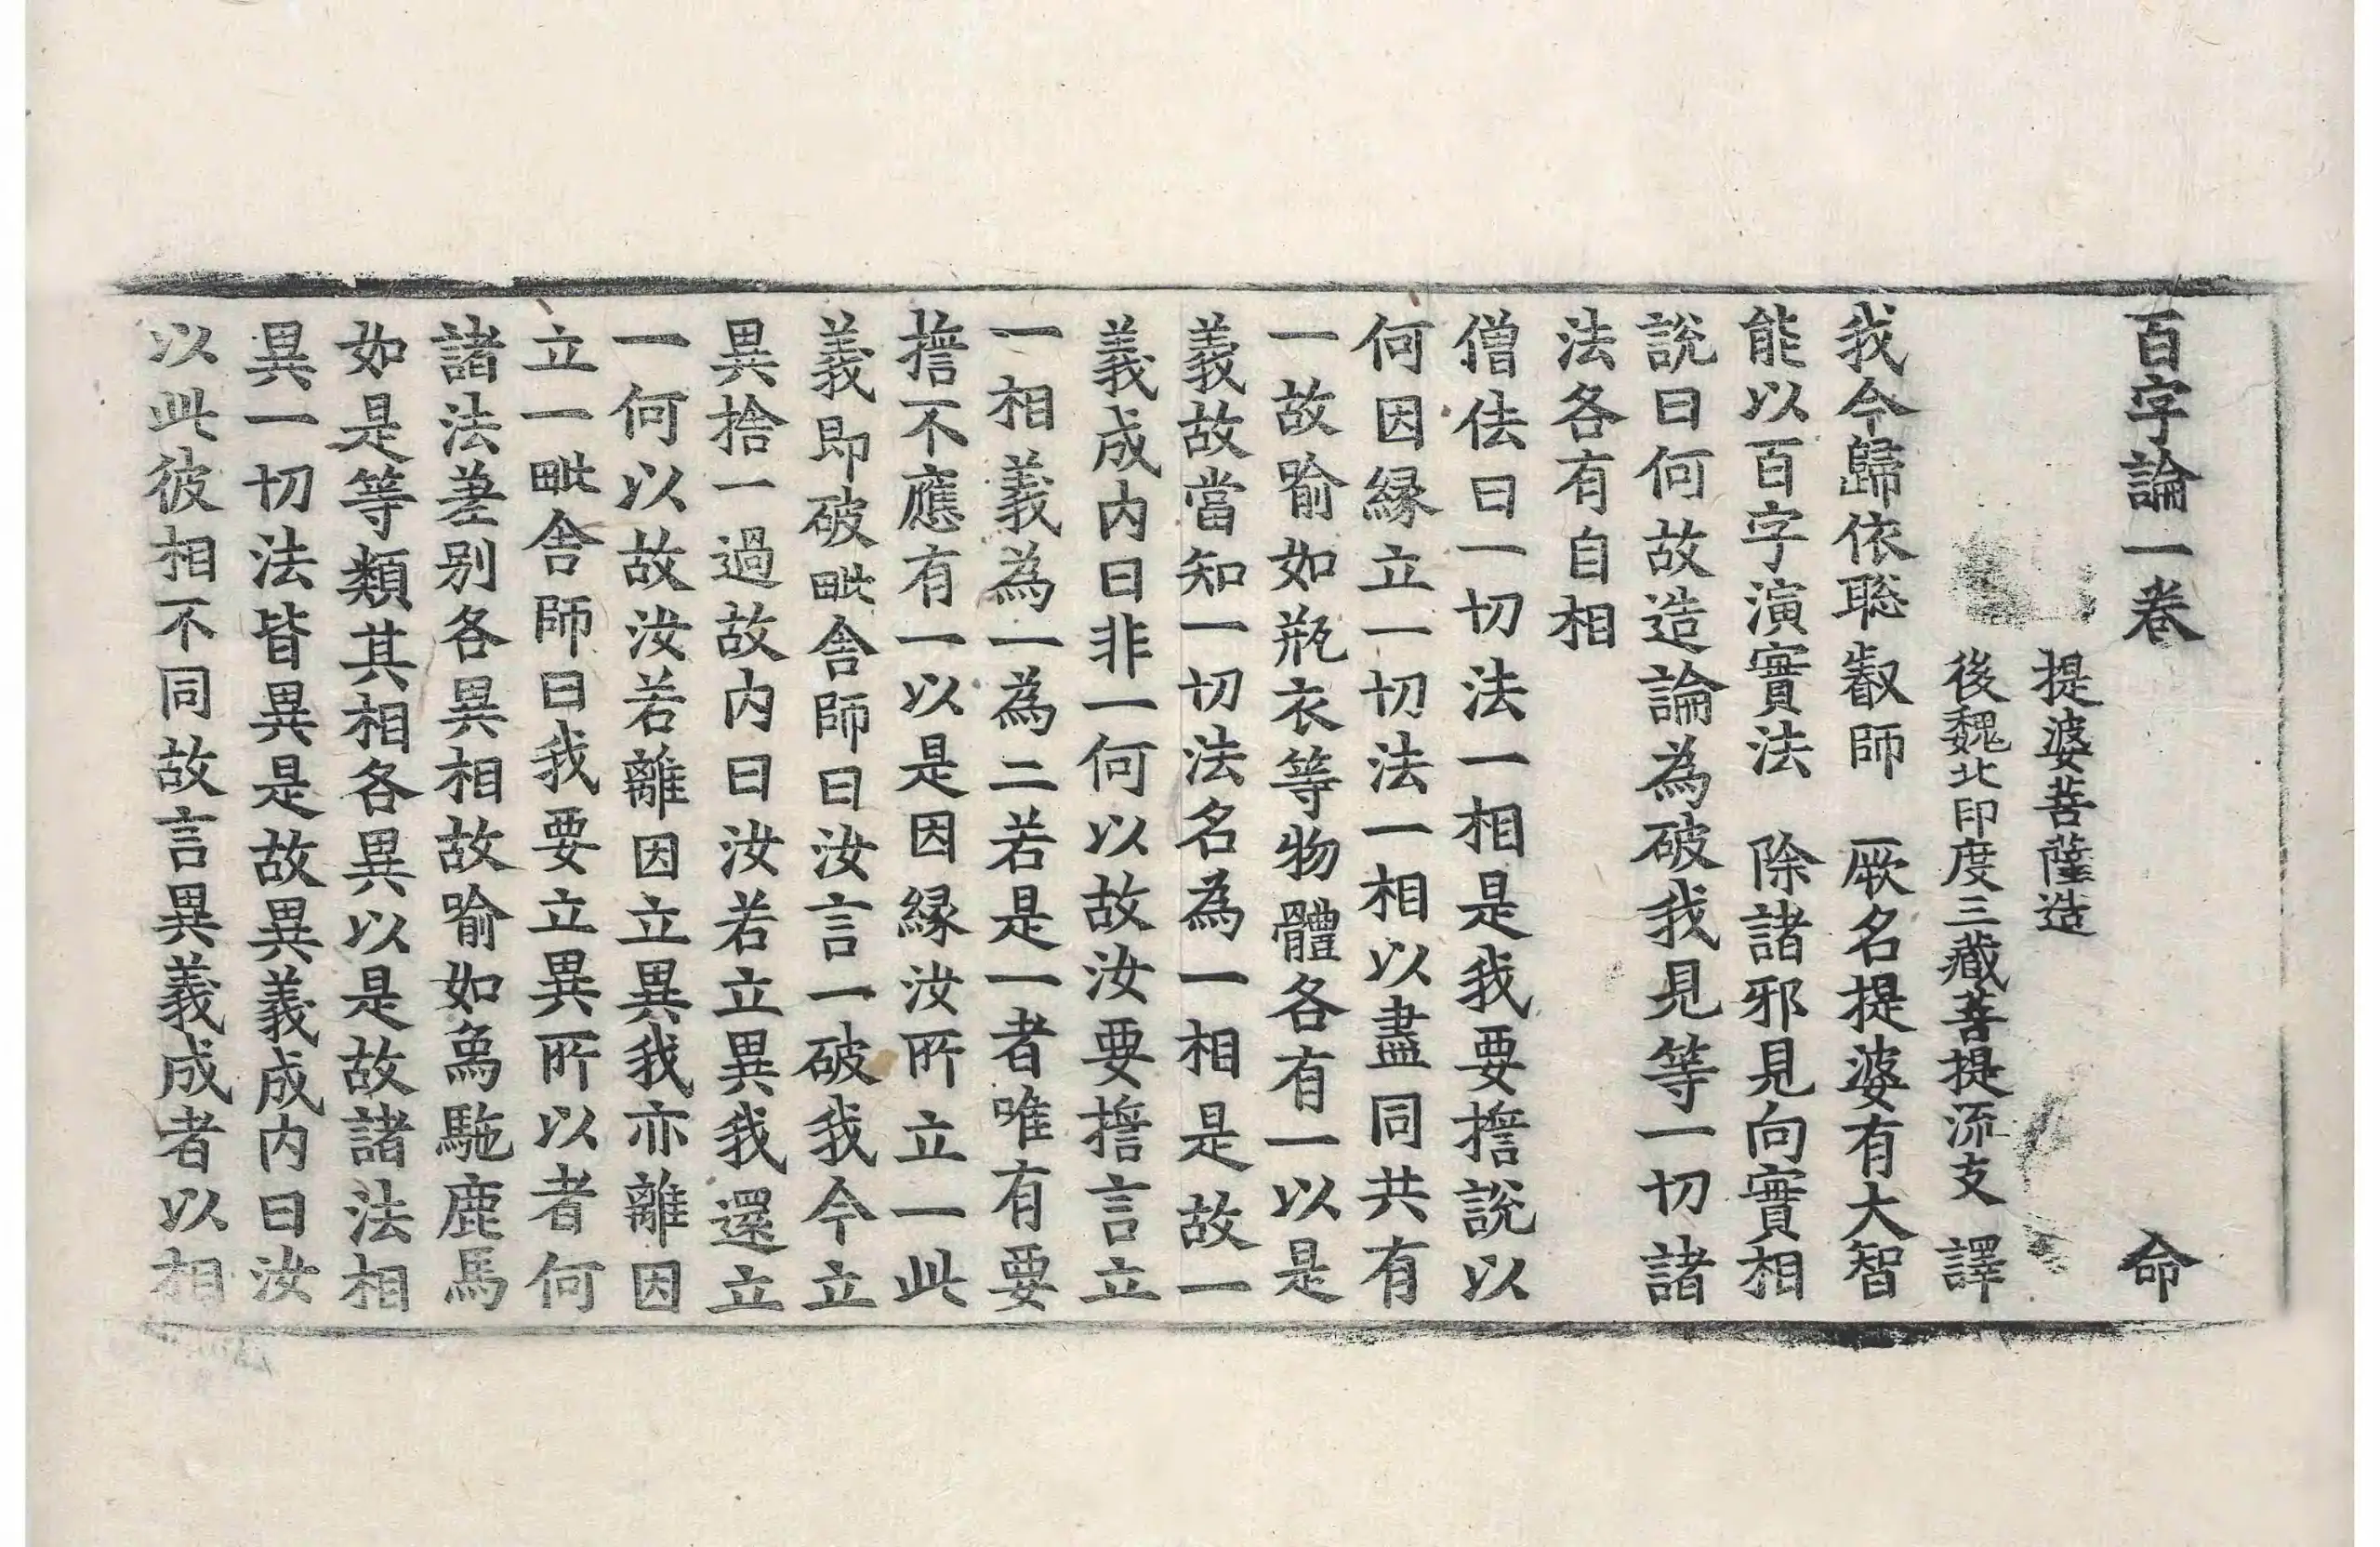 百字論一卷 命
提婆菩薩造
後魏北印度三藏菩提流支 譯
我今歸依聡叡師 厥名提婆有大智
能以百字演實法 除諸邪見向實相
說曰何故造論為破我見等一切諸
法各有自相
僧佉曰一切法一相是我要誓說以
何因縁立一切法一相以盡同共有
一故喻如瓶衣等物體各有一以是
義故當知一切法名為一相是故一
義成内曰非一何以故汝要誓言立
一相義為一為二若是一者唯有要
誓不應有一以是因縁汝所立一此
義即破毗舍師曰汝言一破我今立
異捨一過故内曰汝若立異我還立
一何以故汝若離因立異我亦離因
立一毗舍師曰我要立異所以者何
諸法差别各異相故喻如爲駞鹿馬
如是等類其相各異以是故諸法相
異一切法皆異是故異義成内曰汝
以此彼相不同故言異義成者以相